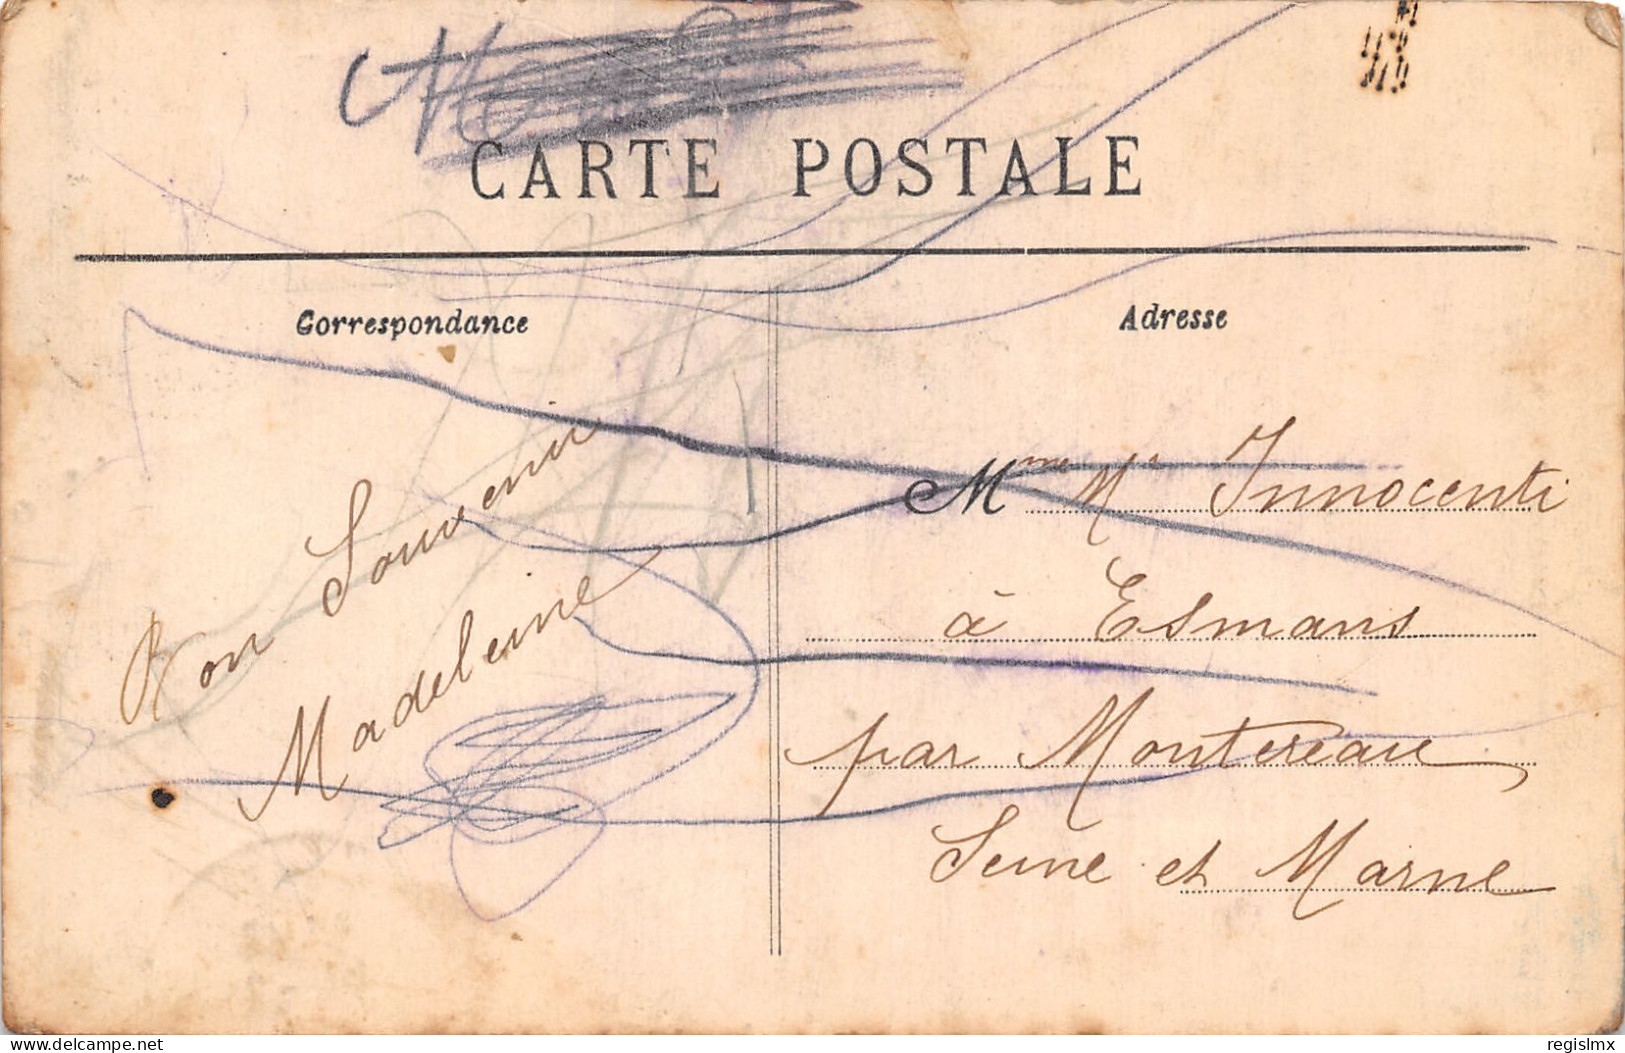 CARTE POSTALE
Correspondance
Adresse
Bon Souvenir
Madeleine
Mme Mr Innocenti
à Esmans
par Montereau
Seine et Marne
delcampe.net
regislmx